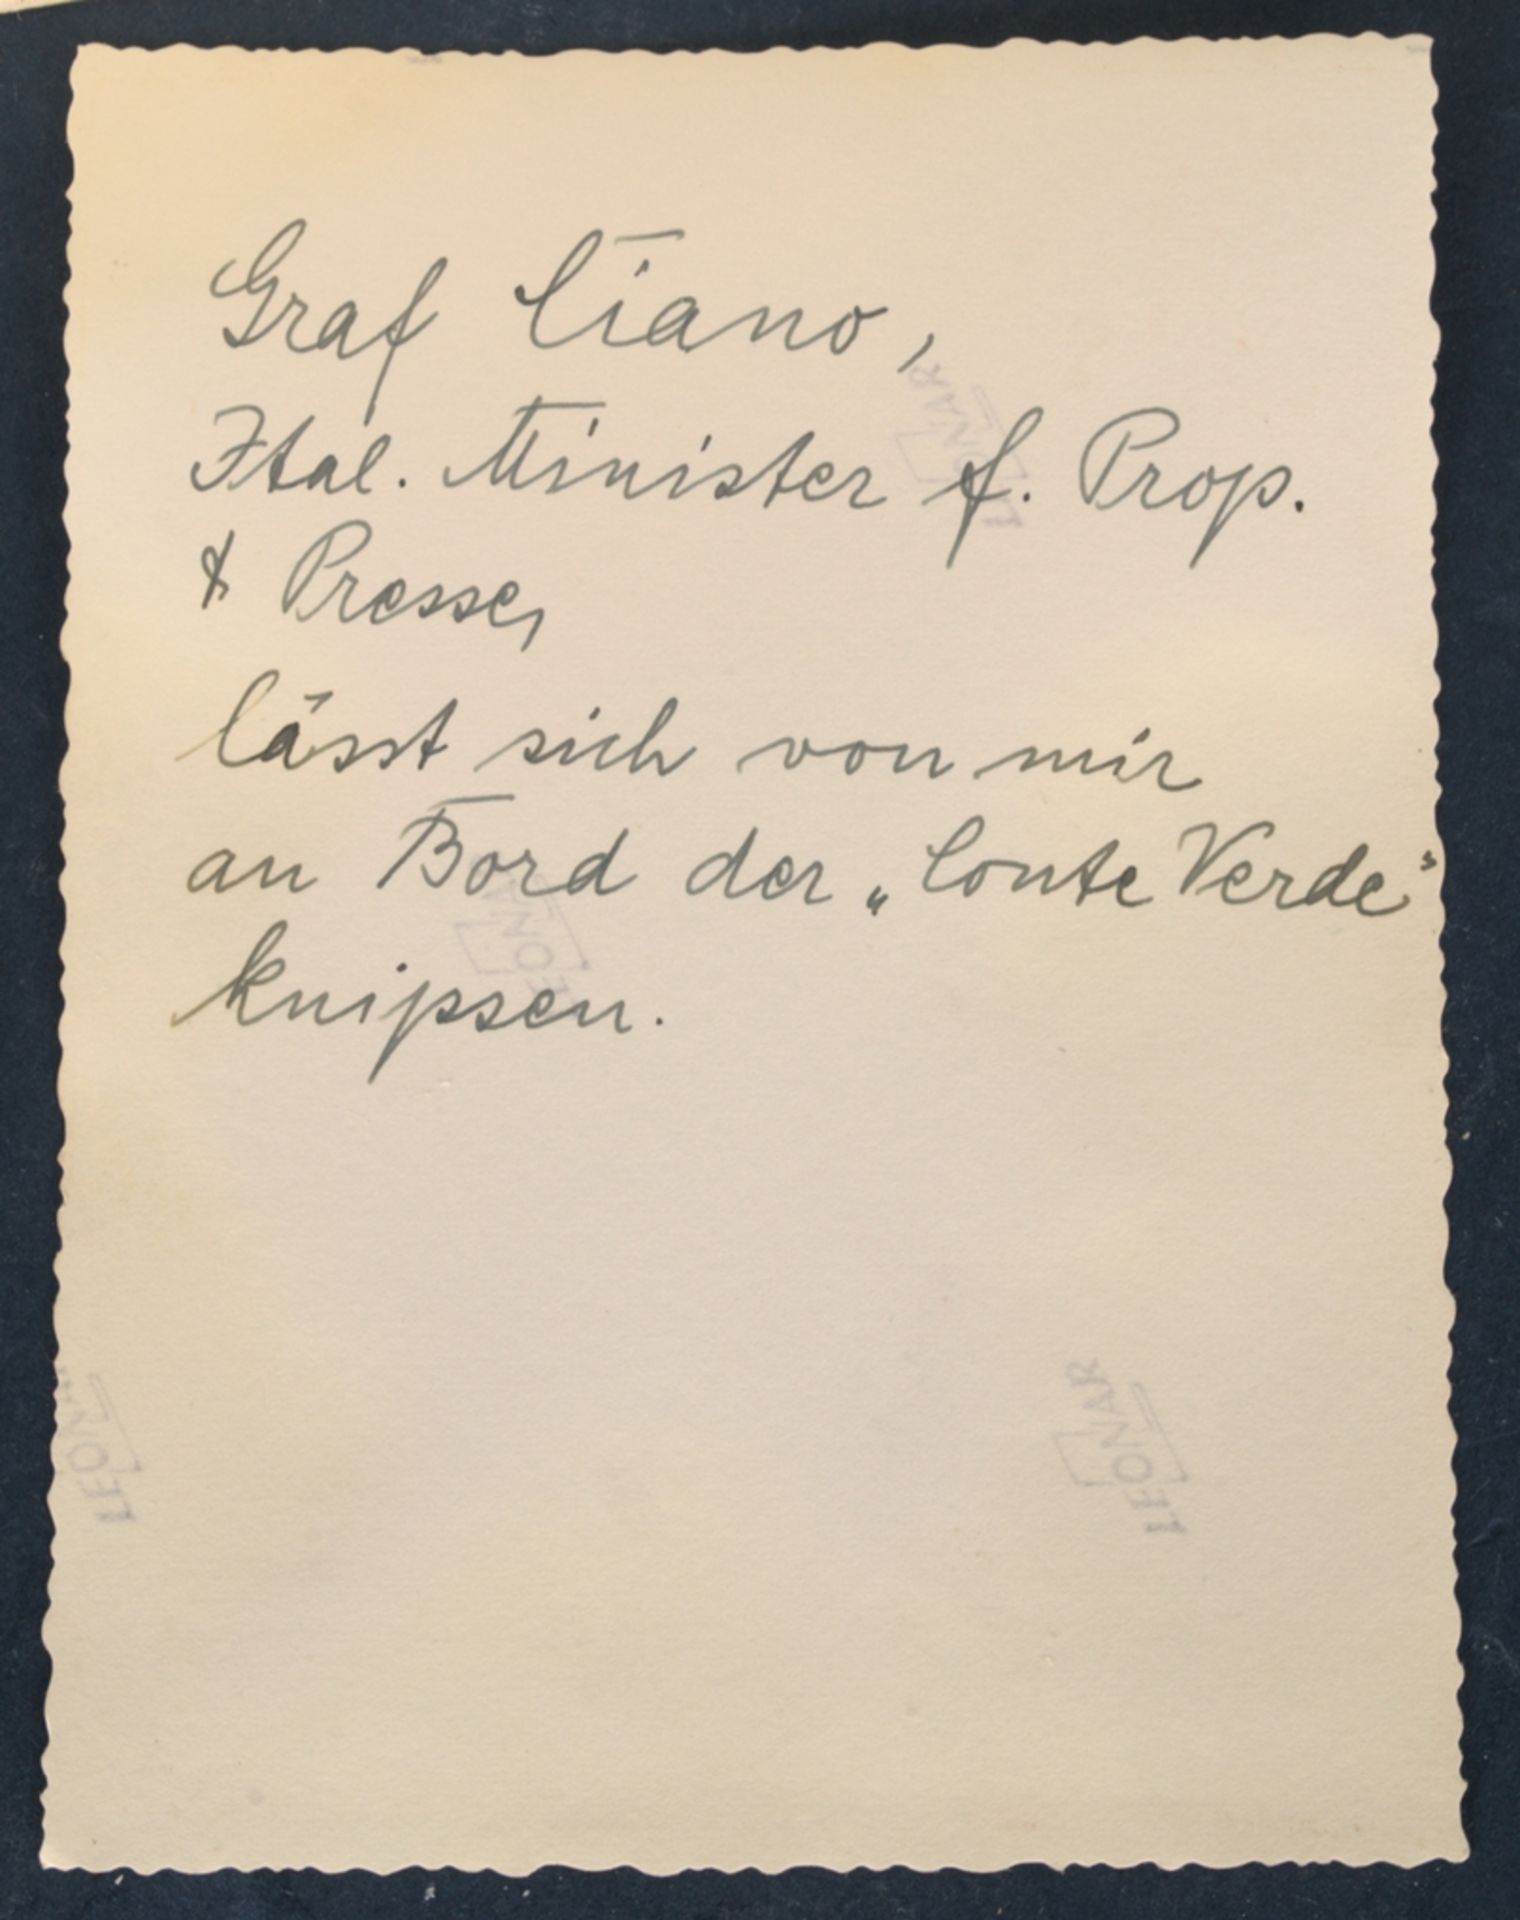 Graf Ciano,
Ital. Minister f. Prop.
& Presse,
lässt sich von mir
an Bord der „Conte Verde"
knipsen.
LEONAR
LEONAR
LEONAR
LEONAR